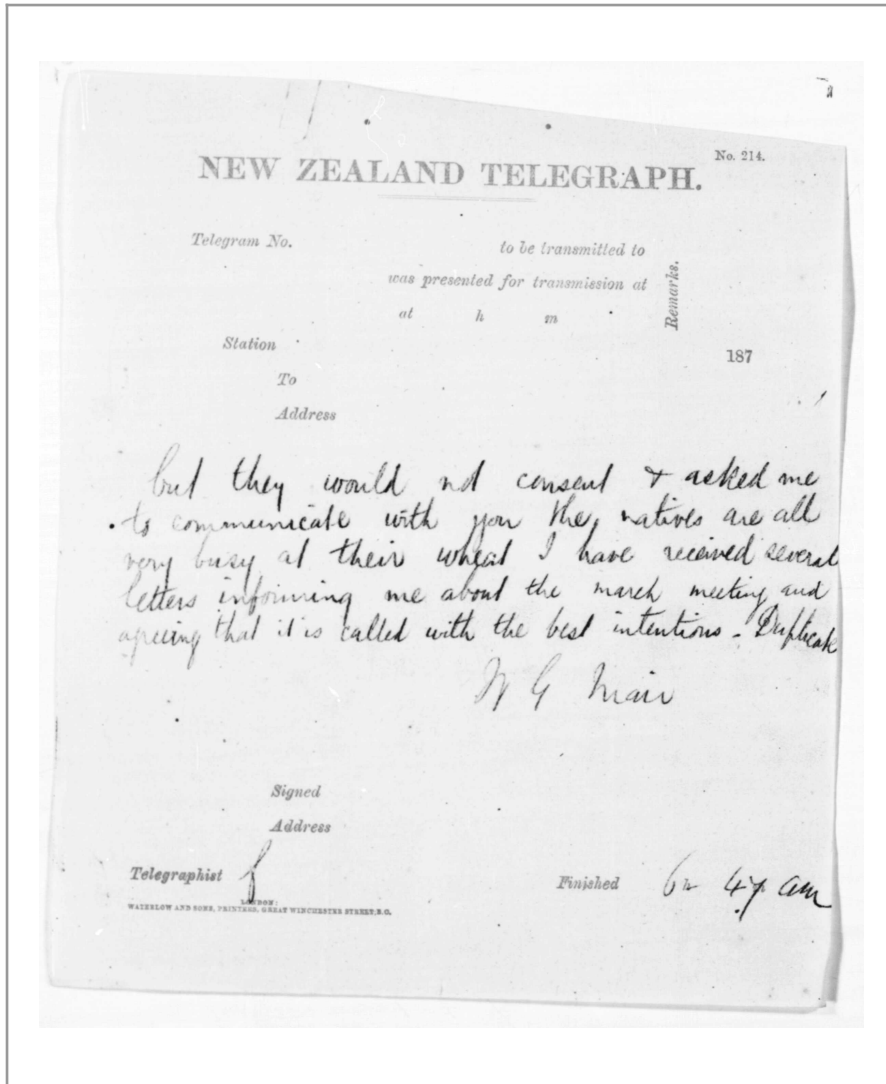 No. 214.
NEW ZEALAND TELEGRAPH.
Telegram No. to be transmitted to
was presented for transmission at
at h m
Remarks.
Station
187
To
Address
but they would not consent & asked me
to communicate with you the natives are all
very busy at their wheat I have received several
letters informing me about the march meeting and
agreeing that it is called with the best intentions - Duplicate
W G Mair
Signed
Address
Telegraphist
Finished 6 47 am
LONDON:
WATERLOW AND SONS, PRINTERS, GREAT WINCHESTER STREET, E.C.